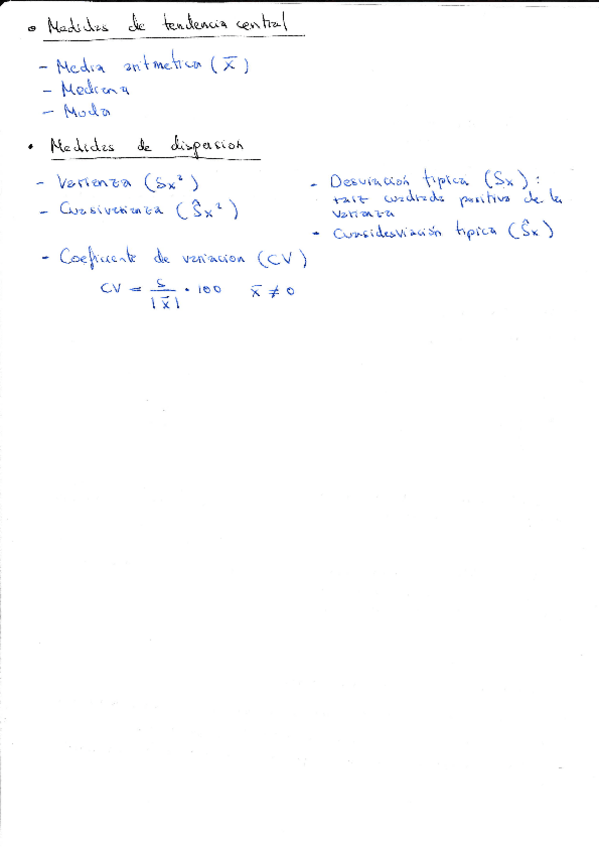 • Medidas de tendencia central
- Media aritmetica (x̄)
- Mediana
- Moda
• Medidas de dispersion
- Varianza (Sx²)
- Cuasivarianza (Ŝx²)
- Desviación típica (Sx) :
raiz cuadrada positiva de la
varianza
- Cuasidesviación típica (Ŝx)
- Coeficiente de variacion (CV)
CV = S / |x̄| · 100 x̄ ≠ 0